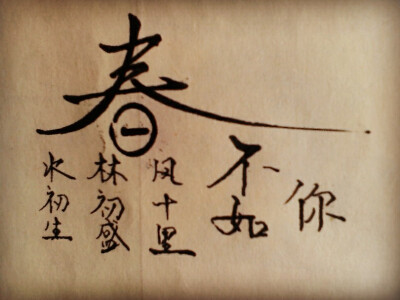 春
水初生
林初盛
风十里
不如
你